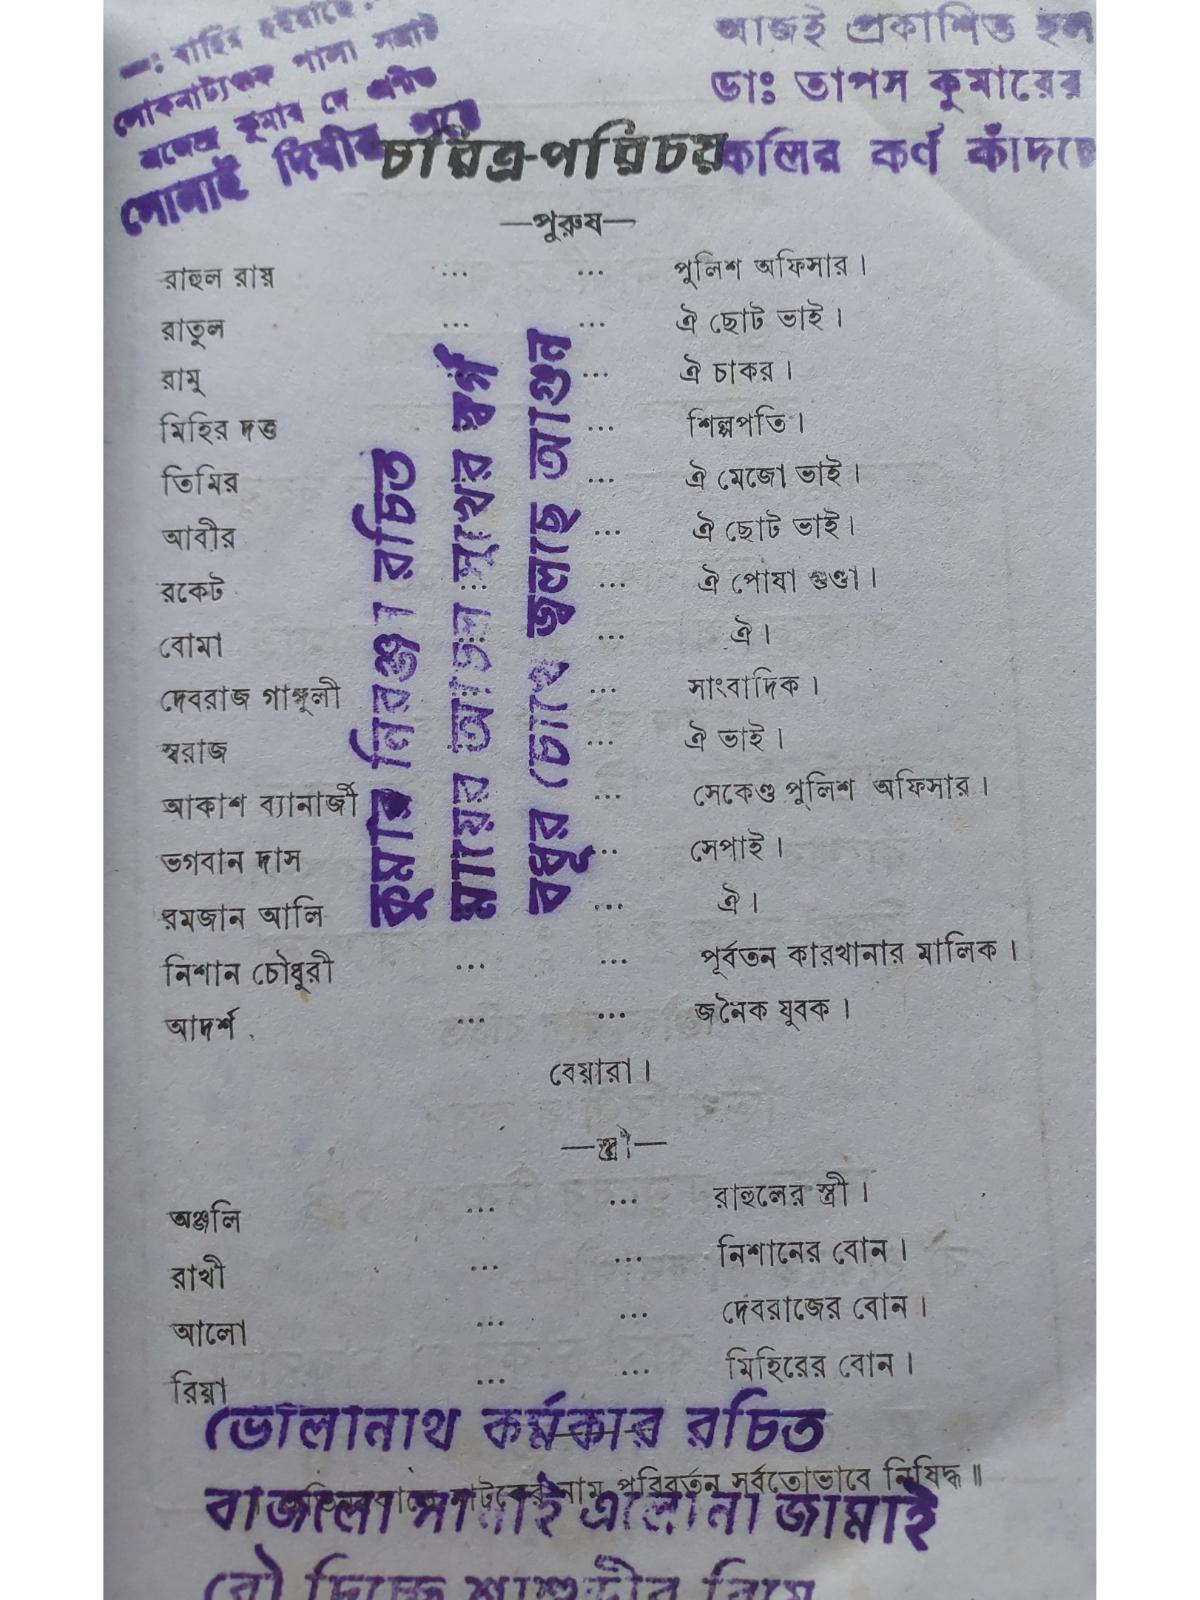 —ঃ বাহির হইয়াছে
লোকনাট্যগুরু পালা সম্রাট
কুমার দে প্রণীত
সোনাই দিঘীর পরে
আজই প্রকাশিত হল
ডাঃ তাপস কুমারের
কলির কর্ণ কাঁদছে
চরিত্র-পরিচয়
—পুরুষ—
রাহুল রায় ... ... পুলিশ অফিসার।
রাতুল ... ... ঐ ছোট ভাই।
রামু ... ঐ চাকর।
মিহির দত্ত ... শিল্পপতি।
তিমির ... ঐ মেজো ভাই।
আবীর ... ঐ ছোট ভাই।
রকেট ... ... ঐ পোষা গুণ্ডা।
বোমা ... ... ঐ।
দেবরাজ গাঙ্গুলী ... ... সাংবাদিক।
স্বরাজ ... ঐ ভাই।
আকাশ ব্যানার্জী ... সেকেণ্ড পুলিশ অফিসার।
ভগবান দাস ... সেপাই।
রমজান আলি ... ঐ।
নিশান চৌধুরী ... ... পূর্বতন কারখানার মালিক।
আদর্শ ... ... জনৈক যুবক।
বেয়ারা।
কুমার নিরঞ্জন রচিত
মায়ের আঁচল সুখের স্বর্গ
বধূর চোখে জ্বলছে আগুন
—স্ত্রী—
অঞ্জলি ... ... রাহুলের স্ত্রী।
রাখী ... ... নিশানের বোন।
আলো ... ... দেবরাজের বোন।
রিয়া ... ... মিহিরের বোন।
ভোলানাথ কর্মকার রচিত
নাটকের নাম পরিবর্তন সর্বতোভাবে নিষিদ্ধ॥
বাজলো সানাই এলোনা জামাই
বৌ দিচ্ছে শাশুড়ীর বিয়ে